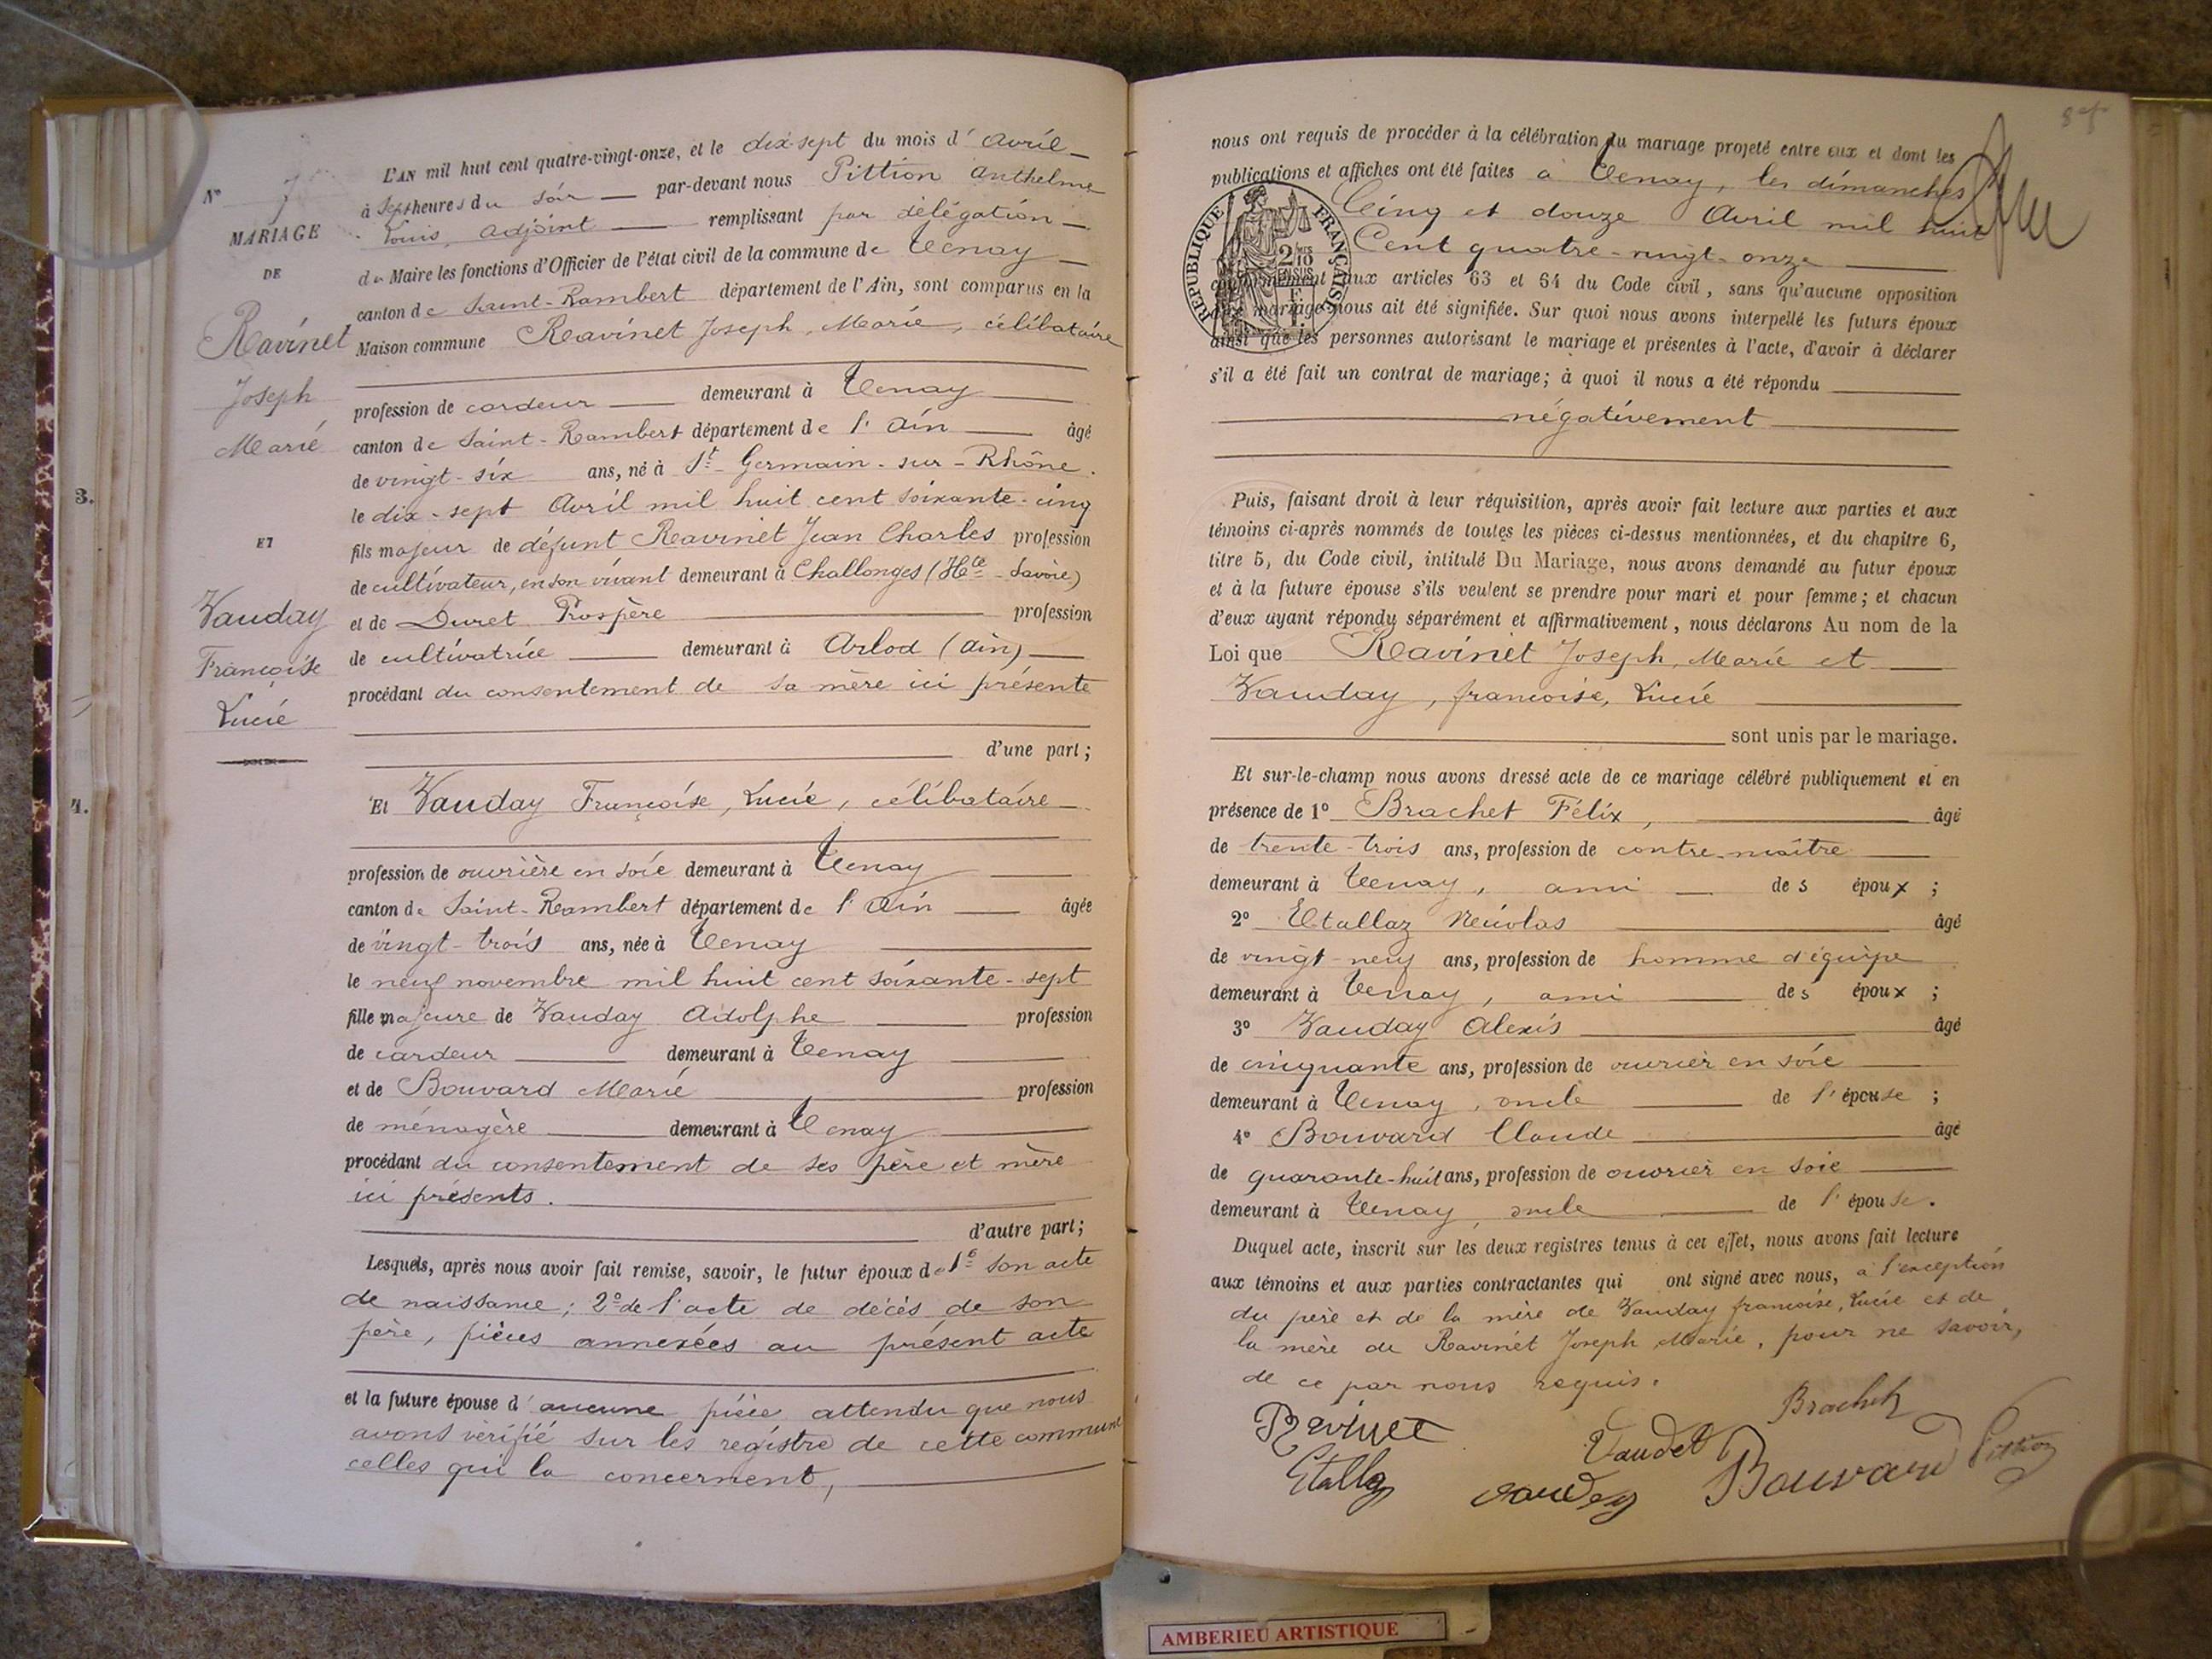 L'AN mil huit cent quatre-vingt-onze, et le dix-sept du mois d'Avril
à Sept heures du Soir par-devant nous Pittion Anthelme
Louis, adjoint remplissant par délégation
du Maire les fonctions d'Officier de l'état civil de la commune de Tenay
canton de Saint-Rambert département de l'Ain, sont comparus en la
Maison commune Ravinet Joseph, Marie, célibataire
profession de cardeur demeurant à Tenay
canton de Saint-Rambert département de l'Ain âgé
de vingt-six ans, né à St Germain-sur-Rhône.
le dix-sept Avril mil huit cent soixante-cinq
fils majeur de défunt Ravinet Jean Charles profession
de cultivateur, en son vivant demeurant à Challonges (Hte-Savoie)
et de Duret Prospère profession
de cultivatrice demeurant à Arlod (Ain)
procédant du consentement de sa mère ici présente
d'une part;
Et Vauday Françoise, Lucie, célibataire
profession de ouvrière en soie demeurant à Tenay
canton de Saint-Rambert département de l'Ain âgée
de vingt-trois ans, née à Tenay
le neuf novembre mil huit cent soixante-sept
fille majeure de Vauday Adolphe profession
de cardeur demeurant à Tenay
et de Bouvard Marie profession
de ménagère demeurant à Tenay
procédant du consentement de ses père et mère
ici présents.
d'autre part;
Lesquels, après nous avoir fait remise, savoir, le futur époux de 1º son acte
de naissance; 2º de l'acte de décès de son
père, pièces annexées au présent acte
et la future épouse d'aucune pièce attendu que nous
avons vérifié sur les registre de cette commune
celles qui la concernent,
Nº 7
MARIAGE
DE
Ravinet
Joseph
Marie
ET
Vauday
Françoise
Lucie
3.
4.
nous ont requis de procéder à la célébration du mariage projeté entre eux et dont les
publications et affiches ont été faites à Tenay, les dimanches
Cinq et douze Avril mil huit
Cent quatre-vingt-onze
conformément aux articles 63 et 64 du Code civil, sans qu'aucune opposition
mariage nous ait été signifiée. Sur quoi nous avons interpellé les futurs époux
ainsi que les personnes autorisant le mariage et présentes à l'acte, d'avoir à déclarer
s'il a été fait un contrat de mariage; à quoi il nous a été répondu
négativement
RÉPUBLIQUE FRANÇAISE
Puis, faisant droit à leur réquisition, après avoir fait lecture aux parties et aux
témoins ci-après nommés de toutes les pièces ci-dessus mentionnées, et du chapitre 6,
titre 5, du Code civil, intitulé Du Mariage, nous avons demandé au futur époux
et à la future épouse s'ils veulent se prendre pour mari et pour femme; et chacun
d'eux ayant répondu séparément et affirmativement, nous déclarons Au nom de la
Loi que Ravinet Joseph, Marie et
Vauday, françoise, Lucie
sont unis par le mariage.
Et sur-le-champ nous avons dressé acte de ce mariage célébré publiquement et en
présence de 1º Brachet Félix, âgé
de trente-trois ans, profession de contre-maître
demeurant à Tenay, ami des époux;
2º Etallaz Nicolas âgé
de vingt-neuf ans, profession de homme d'équipe
demeurant à Tenay, ami des époux;
3º Vauday Alexis âgé
de cinquante ans, profession de ouvrier en soie
demeurant à Tenay, oncle de l'épouse;
4º Bouvard Claude âgé
de quarante-huit ans, profession de ouvrier en soie
demeurant à Tenay, oncle de l'épouse.
Duquel acte, inscrit sur les deux registres tenus à cet effet, nous avons fait lecture
aux témoins et aux parties contractantes qui ont signé avec nous, à l'exception
du père et de la mère de Vauday françoise, Lucie et de
la mère de Ravinet Joseph Marie, pour ne savoir,
de ce par nous requis.
Ravinet Vaudet Brachet
Etallaz Vauday Bouvard Pittion
AMBERIEU ARTISTIQUE